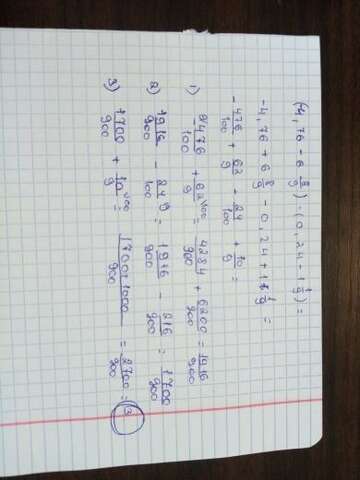 (4,76 - 6 8/9) - (0,24 - 1 1/9) =
-4,76 + 6 8/9 - 0,24 + 1 1/9 =
- 476/100 + 62/9 - 24/100 + 10/9 =
1) - 476/100 + 62/9 = 4284/900 + 6200/900 = 1916/900
2) 1916/900 - 24/100 = 1916/900 - 216/900 = 1700/900
3) 1700/900 + 10/9 = 1700+1000/900 = 2700/900 = 3